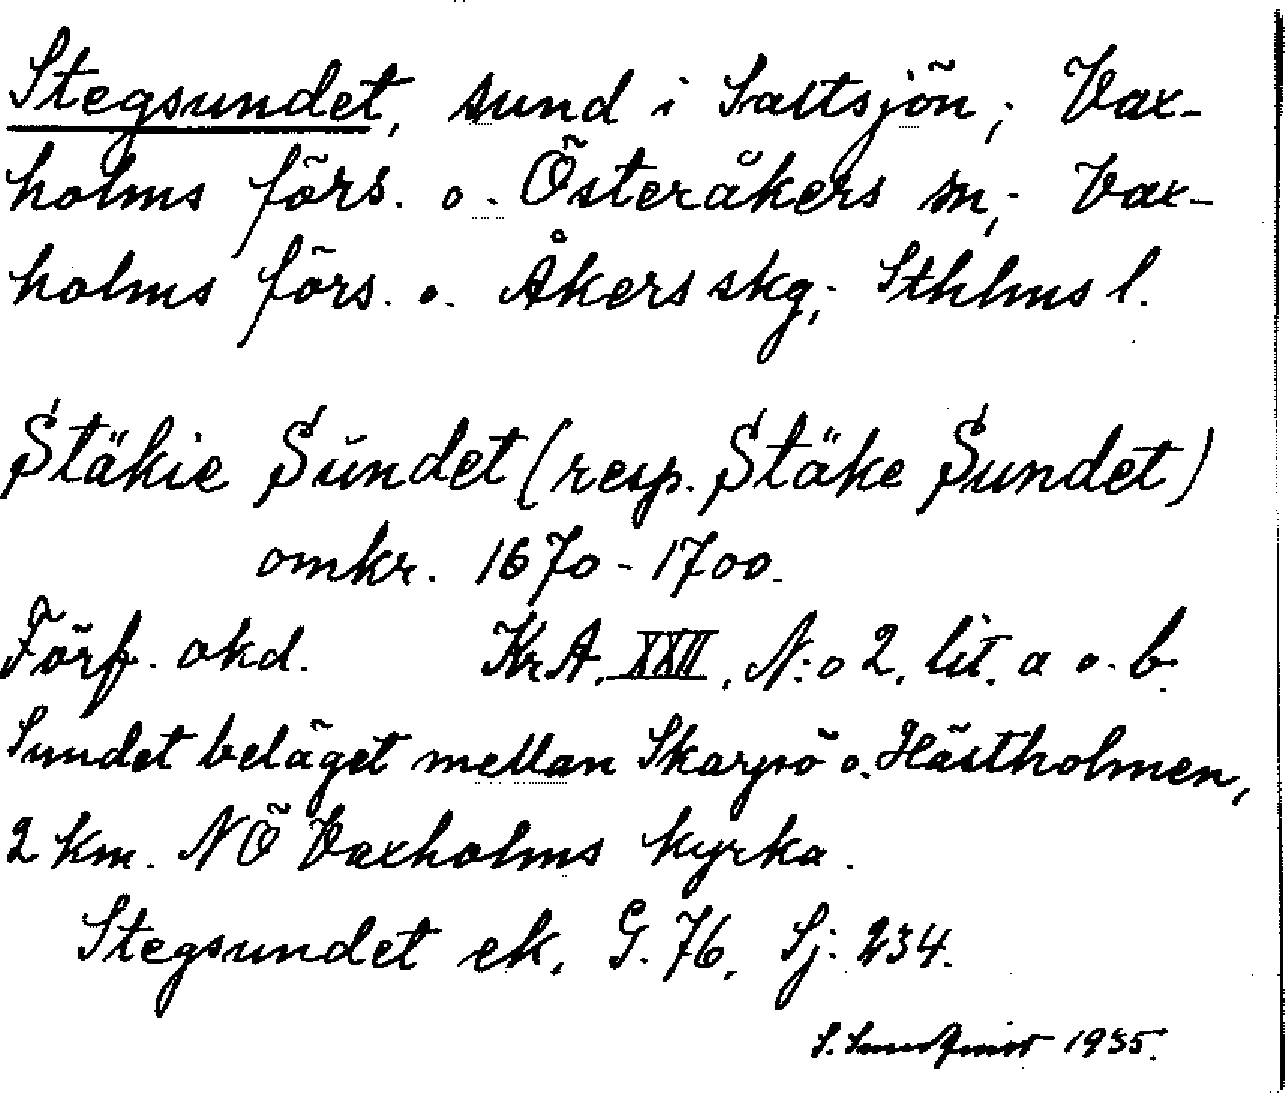 Stegsundet, sund i Saltsjön; Vax-
holms förs. o. Österåkers sn; Vax-
holms förs. o. Åkers skg; Sthlms l.
Stäkie Sundet (resp. Stäke Sundet)
omkr. 1670-1700.
Förf. okd. KrA. XXII, N:o 2. lit. a o. b.
Sundet beläget mellan Skarpö o. Hästholmen,
2 km. NÖ Vaxholms kyrka.
Stegsundet ek. G. 76, Sj: 234.
S. Sundqvist 1935.